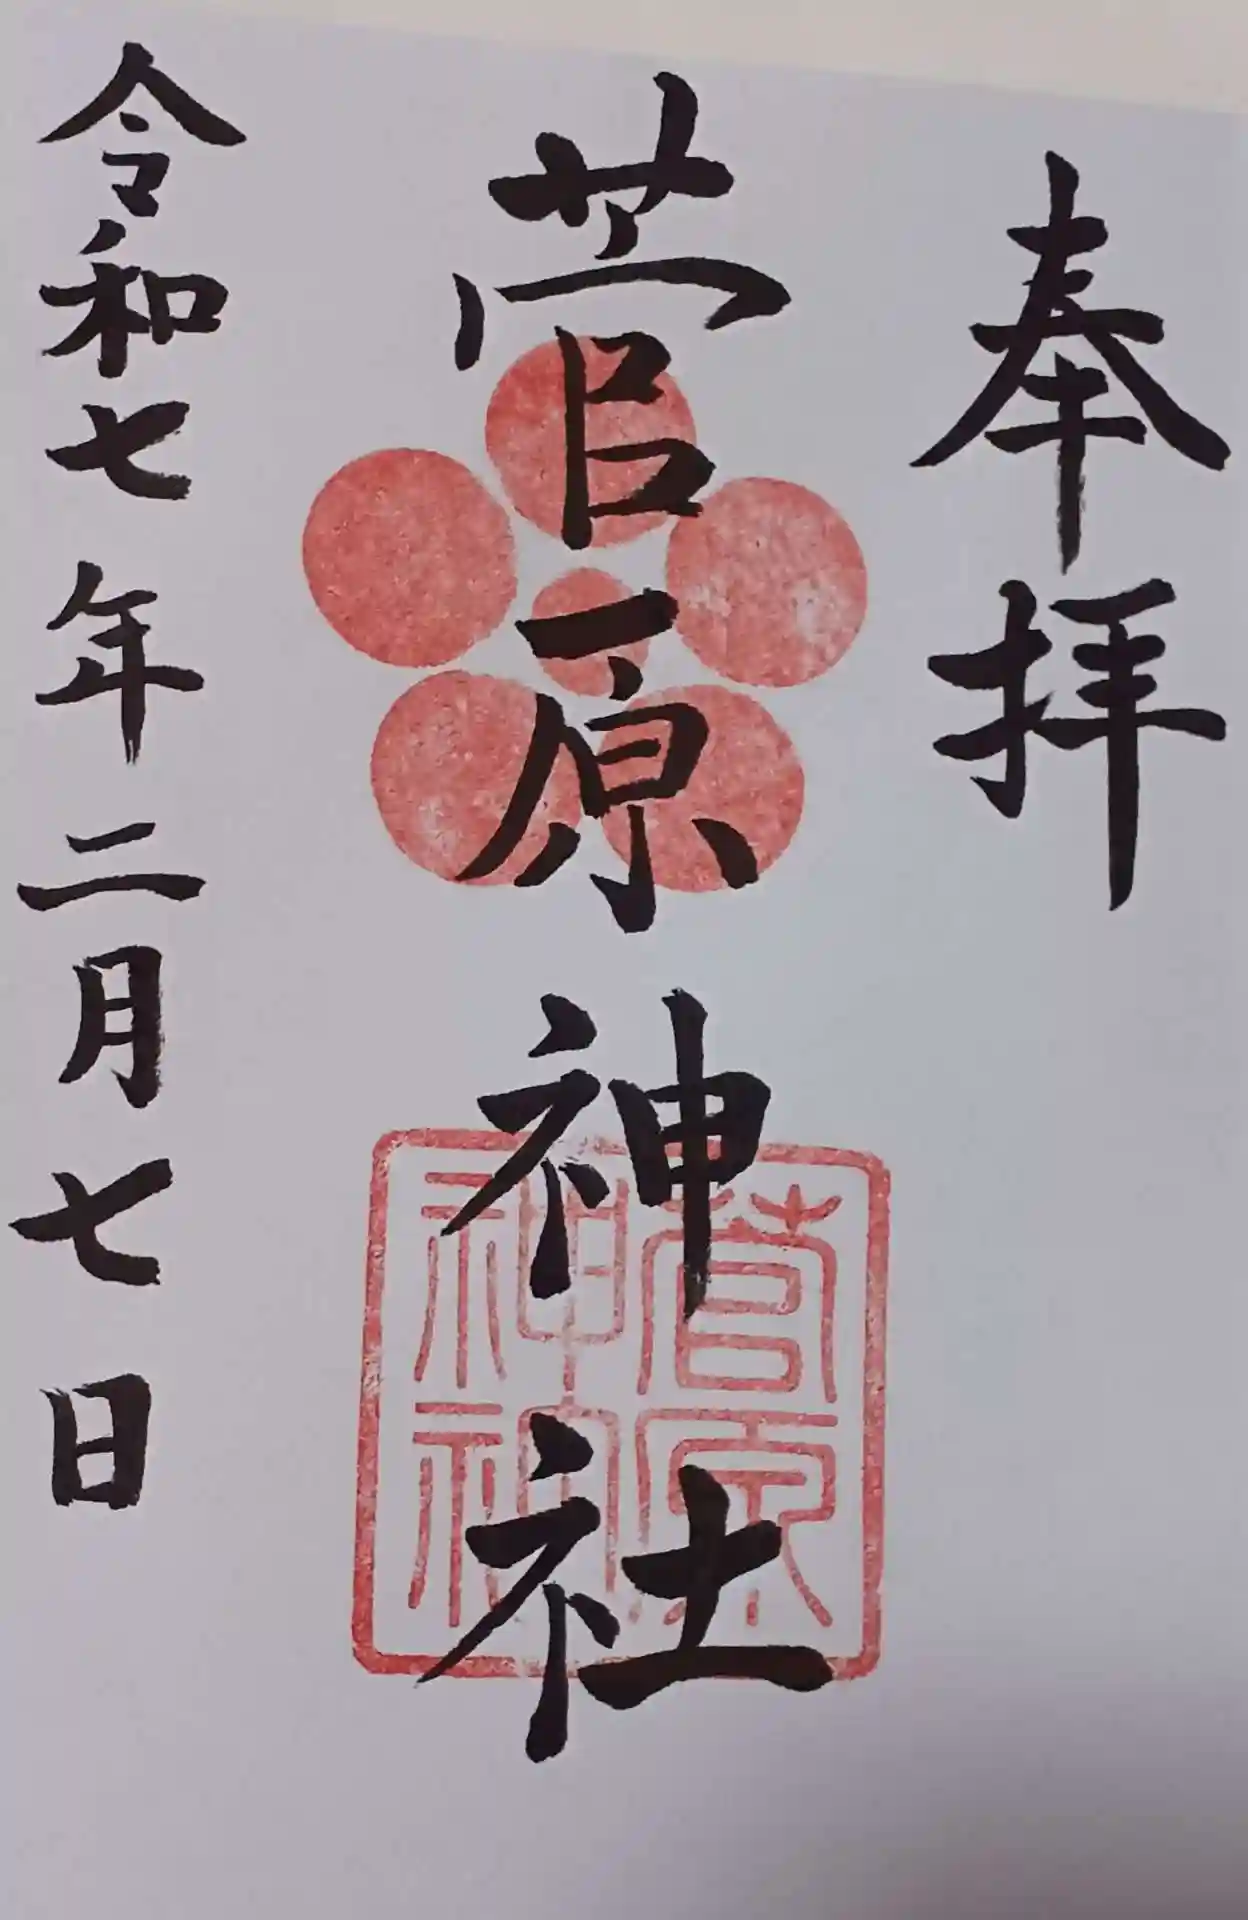 奉拝
菅原神社
菅原
神社
令和七年二月七日